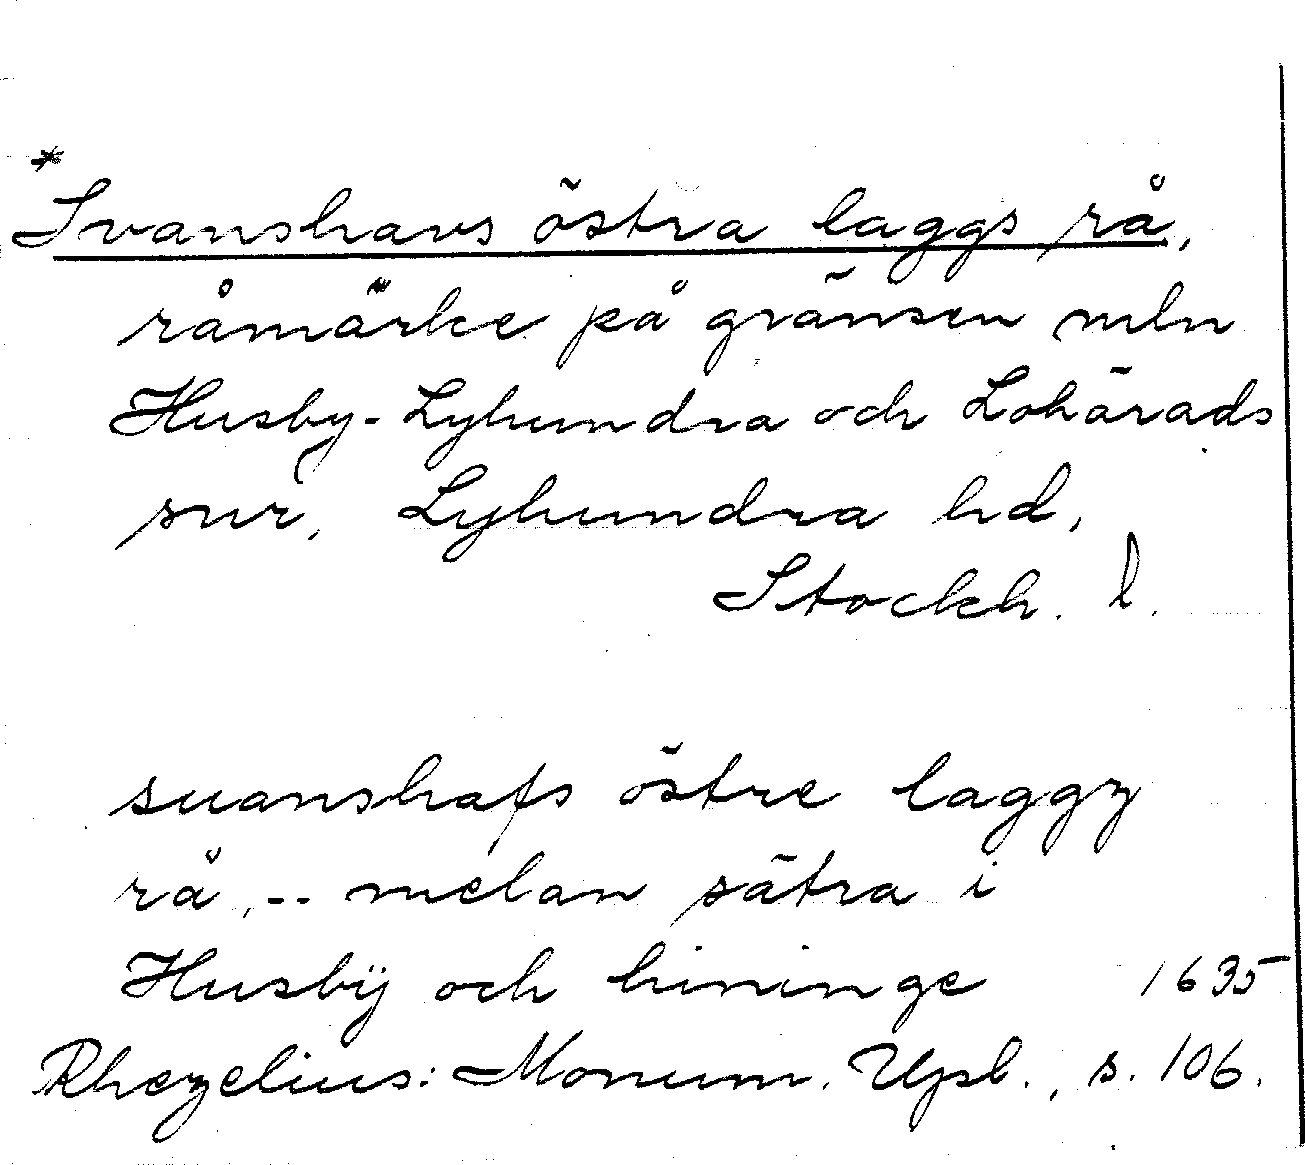 *Svanshavs östra laggs rå,
råmärke på gränsen mln
Husby-Lyhundra och Lohärads
snr, Lyhundra hd,
Stockh. l.
suanshafs östre laggz
rå, -- melan sätra i
Husbÿ och hininge 1635
Rhezelius: Monum. Upl., s. 106.